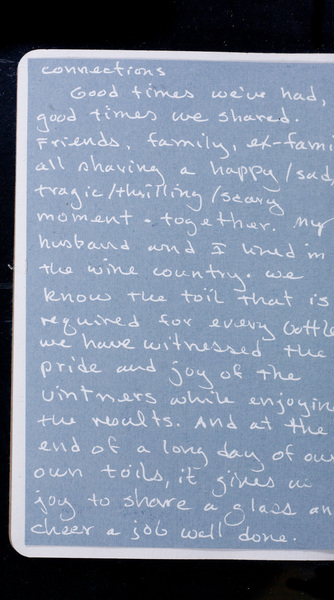 connections
Good times we've had,
good times we shared.
Friends, family, ex-fami
all sharing a happy/sad
tragic/thrilling/scary
moment - together. My
husband and I lived in
the wine country. We
know the toil that is
required for every bottle
we have witnessed the
pride and joy of the
vintners while enjoying
the results. And at the
end of a long day of our
own toils, it gives us
joy to share a glass an
cheer a job well done.